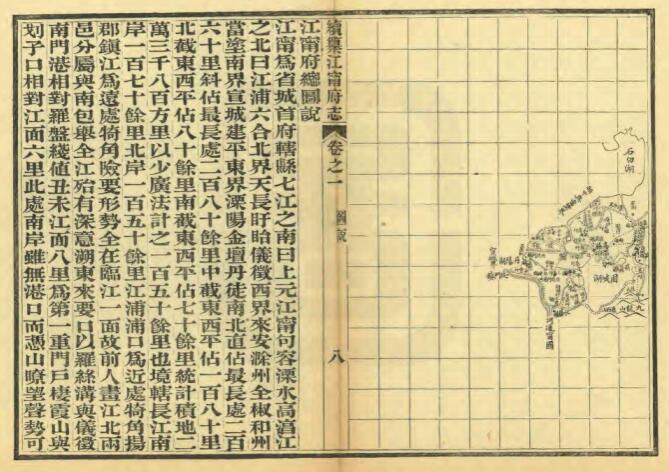 石臼湖
固城湖
續纂江甯府志
卷之一
圖說
八
江甯府總圖說
江甯爲省城首府轄縣七江之南曰上元江甯句容溧水高淳江
之北曰江浦六合北界天長盱眙儀徵西界來安滁州全椒和州
當塗南界宣城建平東界溧陽金壇丹徒南北直佔最長處二百
六十里斜佔最長處二百八十餘里中截東西平佔一百八十里
北截東西平佔八十餘里南截東西平佔七十餘里統計積地二
萬三千八百方里以少廣法計之一百五十餘里也境轄長江南
岸一百七十餘里北岸一百五十餘里江浦浦口爲近處犄角揚
郡鎮江爲遠處犄角險要形勢全在臨江一面故前人畫江北兩
邑分屬與南包舉全江殆有深意溯東來要口以羅絲溝與儀徵
南門港相對羅盤綫值丑未江面八里爲第一重門戶棲霞山與
划子口相對江面六里此處南岸雖無港口而憑山瞭望聲勢可